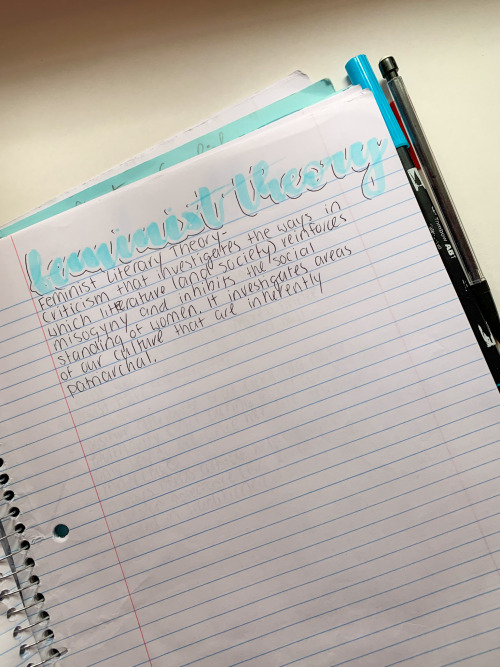 feminist theory
Feminist Literary Theory-
Criticism that investigates the ways in
which literature (and society) reinforces
misogyny and inhibits the social
standing of women. It investigates areas
of our culture that are inherently
patriarchal.
Tombow ABT